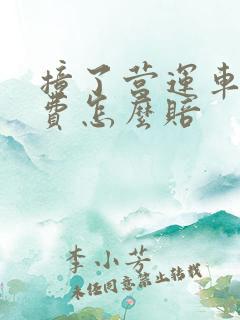 撞了营运车
费怎麽赔
李小芳
未经同意禁止转载